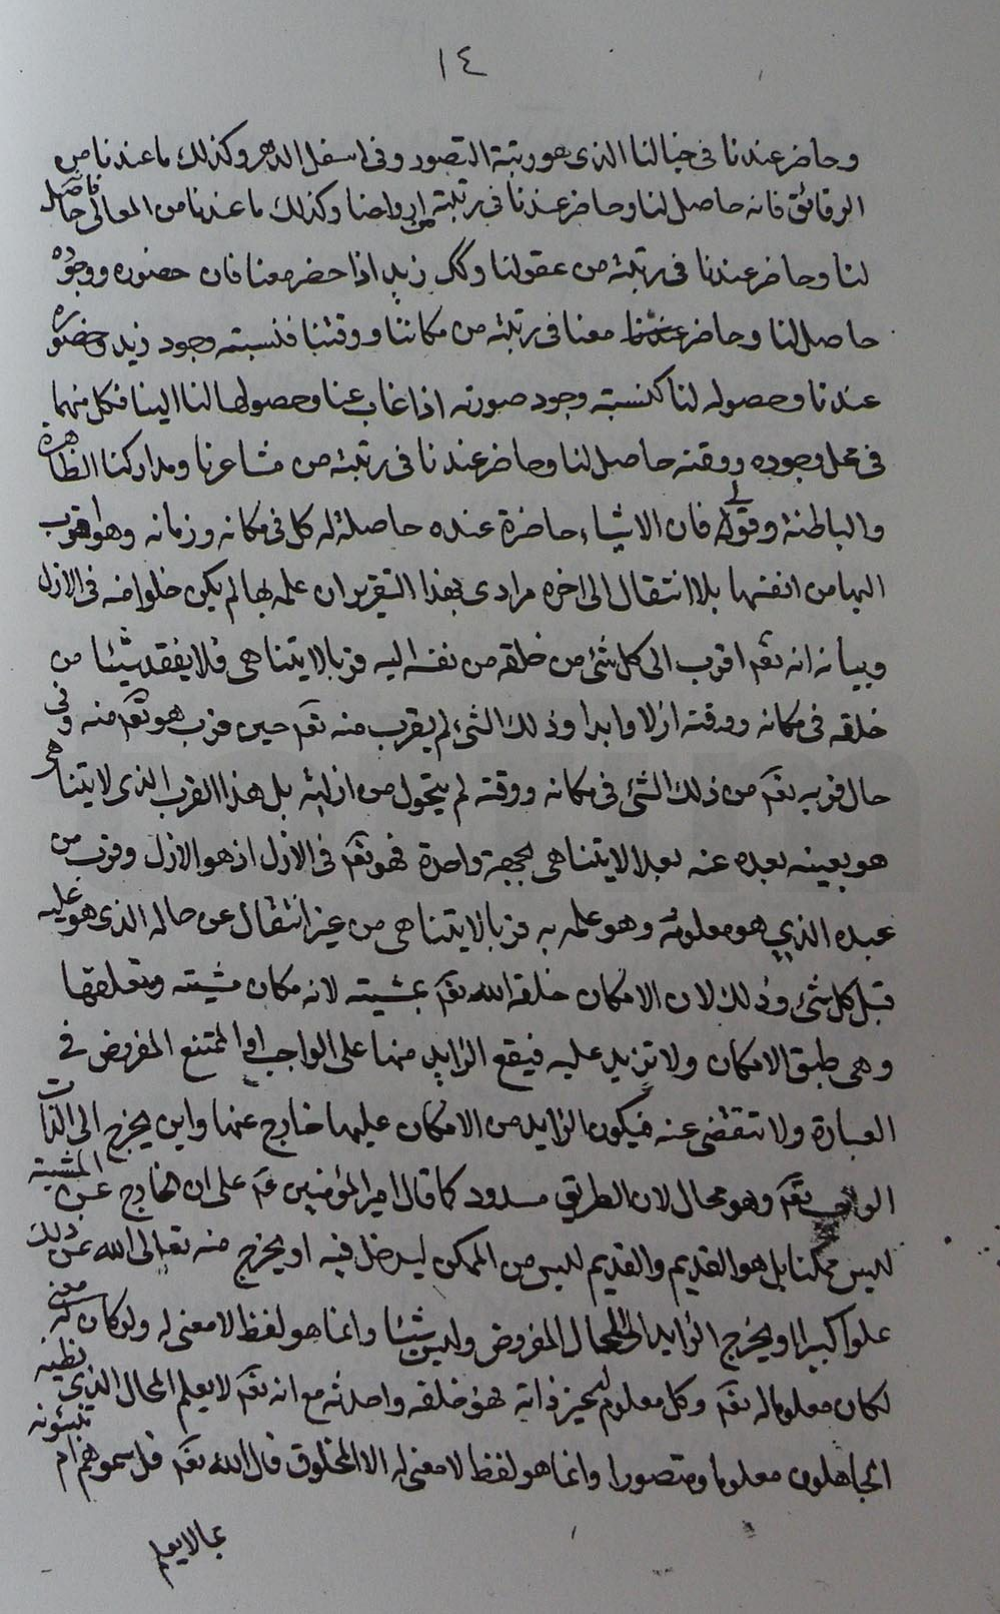 ١٤
وحاضر عندنا فى خيالنا الذى هو رتبة التصور وفى اسفل الدهر وكذلك ما عندنا من
الرقائق فانه حاصل لنا وحاضر عندنا فى رتبته من ارواحنا وكذلك ما عندنا من المعانى فانه حاصل
لنا وحاضر عندنا فى رتبته من عقولنا وكك زيد اذا حضر معنا فان حضوره ووجوده
حاصل لنا وحاضر معنا فى رتبته من مكاننا ووقتنا فنسبته وجود زيد وحضوره
عندنا وحصوله لنا كنسبته وجود صورته اذا غاب عنا وحصولها لنا الينا فكل منهما
فى محل وجوده ووقته حاصل لنا وحاضر عندنا فى رتبته من مشاعرنا ومداركنا الظاهرة
والباطنة وقولى فان الاشياء حاضرة عنده حاصلة له كل فى مكانه وزمانه وهو اقرب
اليها من انفسها بلا انتقال الى اخره مرادى بهذا التقرير ان علمه بها لم يكن خلوا منه فى الازل
وبيانه انه تعم اقرب الى كل شئ من خلقه من نفسه اليه قربا لا يتناهى فلا يفقد شيئا من
خلقه فى مكانه ووقته ازلا وابدا وذلك الشئ لم يقرب منه تعم حين قرب هو تعم منه وفى
حال قربه تعم من ذلك الشئ فى مكانه ووقته لم يتحول من ازليته بل هذا القرب الذى لا يتناهى
هو بعينه بعده عنه بعدا لا يتناهى بجهة واحدة فهو تعم فى الازل اذ هو الازل وقرب من
عبده الذى هو معلومه وهو علمه به قربا لا يتناهى من غير انتقال عن حاله الذى هو عليه
قبل كل شئ وذلك لان الامكان خلقه الله تعم بمشيته لانه مكان مشيته ومتعلقها
وهى طبق الامكان ولا تزيد عليه فيقع الزايد منها على الواجب او الممتنع المفروض فى
العبارة ولا تنقص عنه فيكون الزايد من الامكان عليها خارج عنها واين يخرج الى الذات
الواجب تعم وهو محال لان الطريق مسدود كما قال امير المؤمنين عم على ان الخارج عن المشية
ليس ممكنا بل هو القديم والقديم ليس من الممكن ليدخل فيه او يخرج منه تعالى الله عن ذلك
علوا كبيرا او يخرج الزايد الى المحال المفروض وليس شيئا وانما هو لفظ لا معنى له ولو كان له معنى
لكان معلوما له تعم وكل معلوم لغير ذاته فهو خلقه واحدثه مع انه تعم لا يعلم المحال الذى يظنه
الجاهلون معلوما ومتصورا وانما هو لفظ لا معنى له الا المخلوق قال الله تعم قل سموهم ام تنبئونه
بما لا يعلم